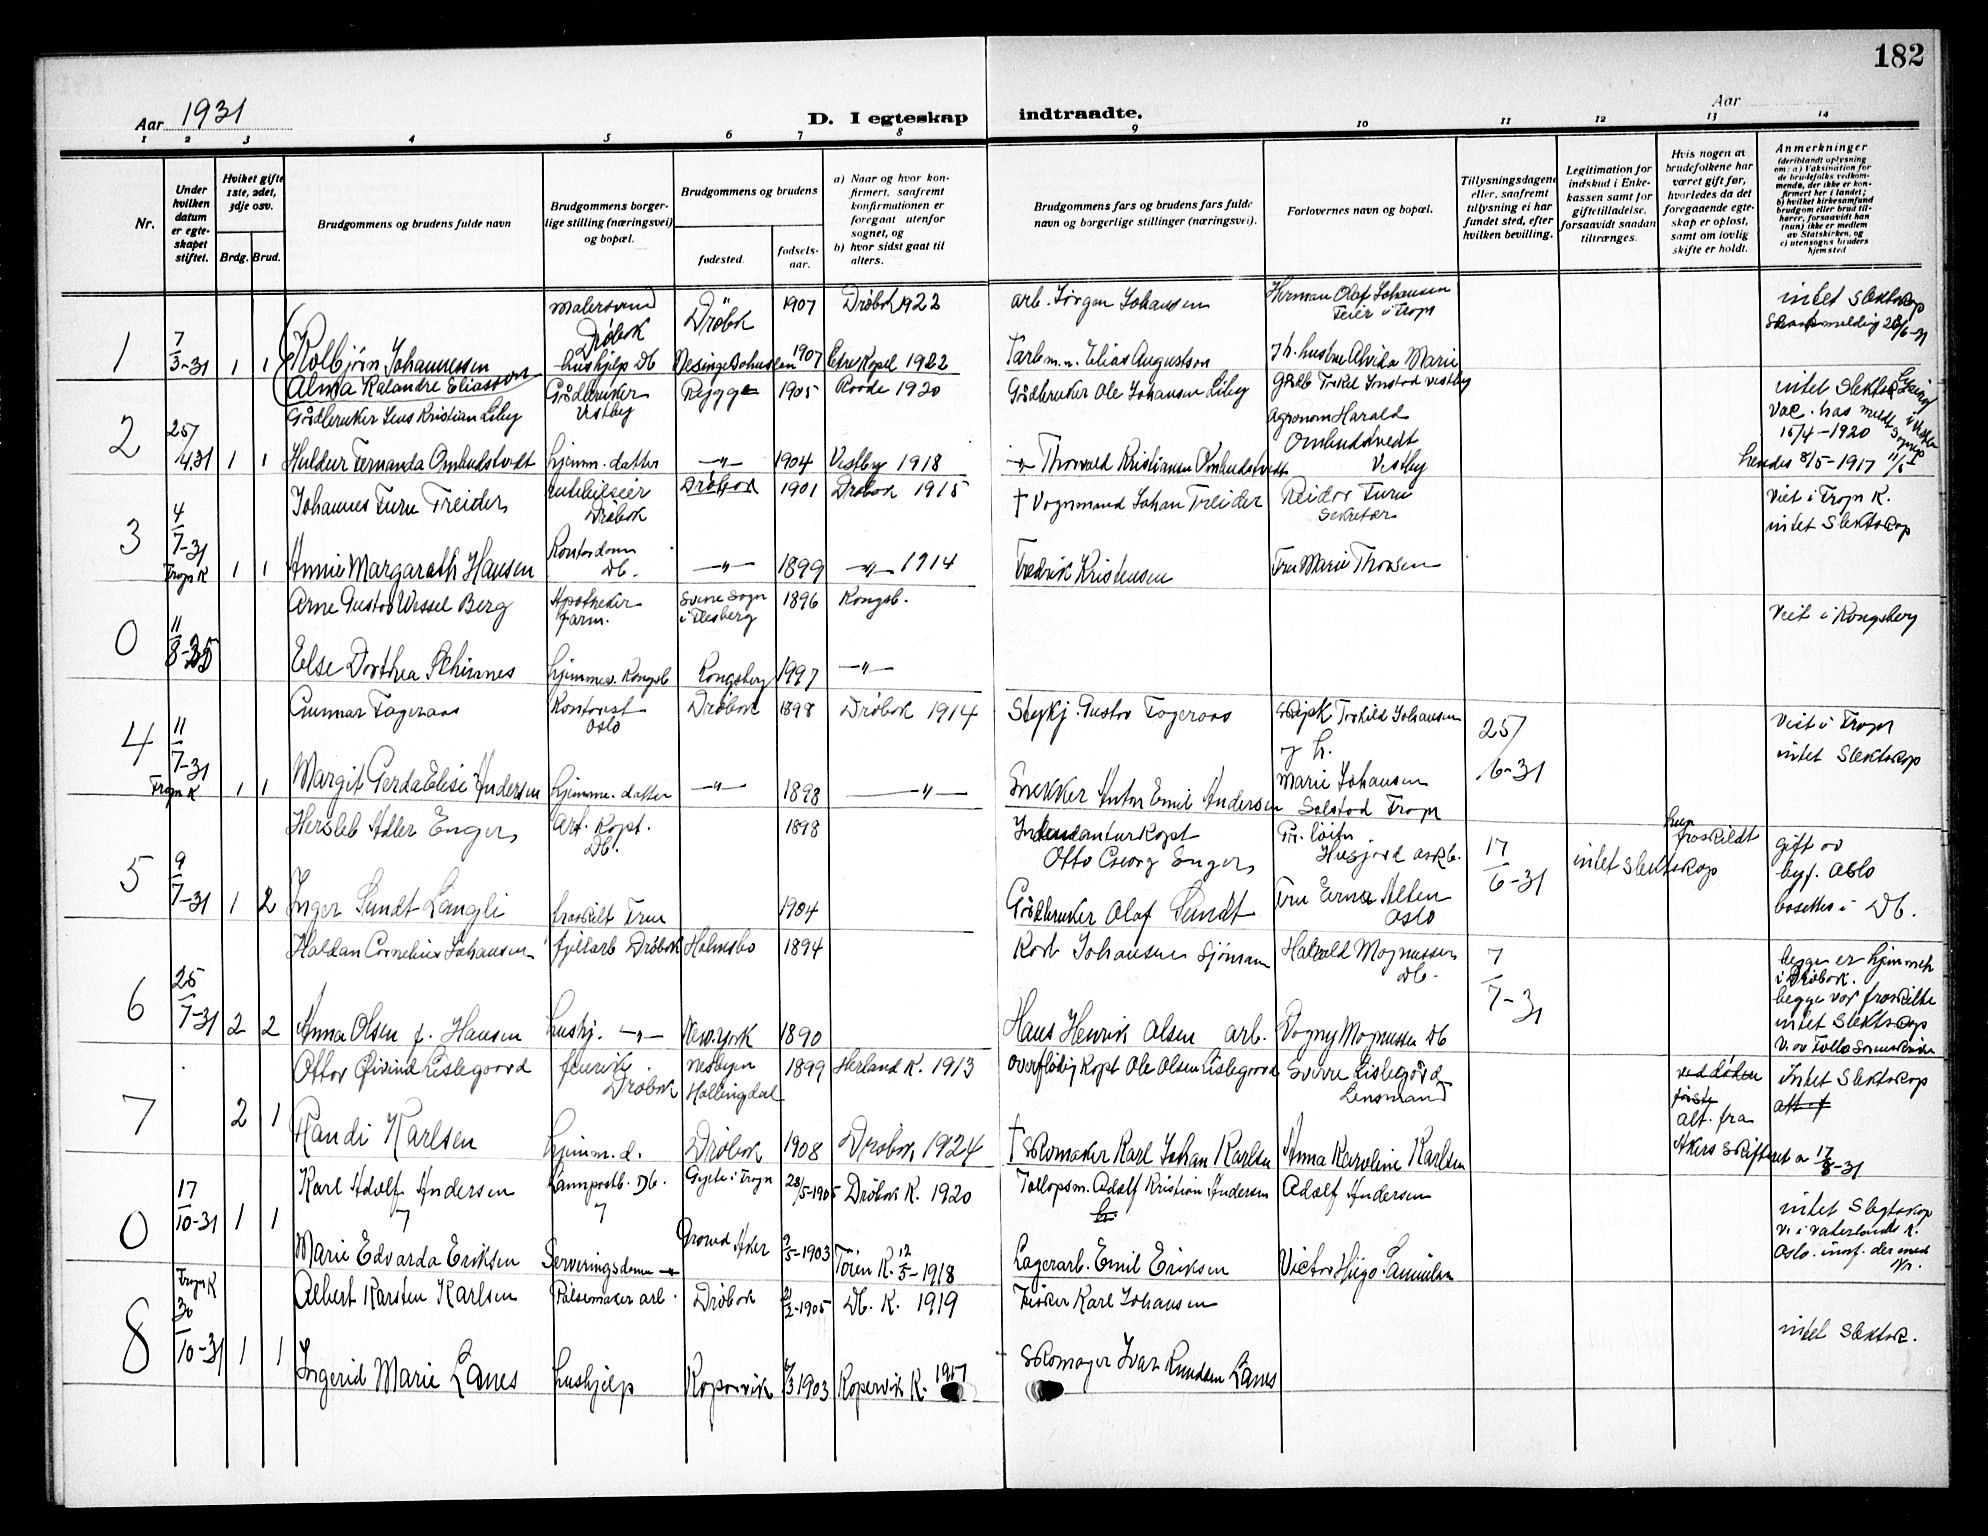 182
Aar 1931
D. I egteskap indtraadte.
Aar
1 2 3 4 5 6 7 8 9 10 11 12 13 14
Nr.
Under hvilken datum er egte-skapet stiftet.
Hvilket gifte 1ste, 2det, 3dje osv.
Brdg. Brud.
Brudgommens og brudens fulde navn
Brudgommens borger-lige stilling (næringsvei) og bopæl.
Brudgommens og brudens
fødested.
fødsels-aar.
a) Naar og hvor kon-firmert, saafremt konfirmationen er foregaat utenfor sognet, og
b) hvor sidst gaat til alters.
Brudgommens fars og brudens fars fulde navn og borgerlige stillinger (næringsvei).
Forlovernes navn og bopæl.
Tillysningsdagene eller, saafremt tillysning ei har fundet sted, efter hvilken bevilling.
Legitimation for indskud i Enke-kassen samt for giftetilladelse, forsaavidt saadan tiltrænges.
Hvis nogen av brudefolkene har været gift før, hvorledes da det foregaaende egte-skap er opløst, samt om lovlig skifte er holdt.
Anmerkninger
(deriblandt oplysning om: a) Vaksination for de brudefolks vedkom-mende, der ikke er kon-firmert her i landet; b) hvilket kirkesamfund brudgom eller brud til-hører, forsaavidt han (hun) ikke er medlem av Statskirken, og c) utensogns bruders hjemsted
1 7/3-31 1 1
Kolbjørn Johannessen
Malersvend Drøbak
Drøbak 1907 Drøbak 1922
arb. Jørgen Johansen
Herman Olaf Johansen
Feier i Frogn
intet Slektskap
Alma Kalandre Eliassen
hushjelp Db
1907
1922
Elias Augustson
hustru Alvida Marie
2 25/4.31 1 1
Gårdbruker Jens Kristian Liby
Gårdbruker Vestby
Rygge 1905 Raade 1920
Gårdbruker Ole Johansen Liby
Vestby
intet Slektskap
Vac. has
15/4-1920
Huldur Fernanda Ombudstvedt
hjemm. datter
-"- 1904 Vestby 1918
-"- Thorvald Kristiansen Ombudstvedt
Agronom Harald
Ombudstvedt
Vestby
hendes 8/5-1917
3 4/7-31 Frogn K 1 1
Johannes Furu Treider
Drøbak
Drøbak 1901 Drøbak 1915
† Vognmand Johan Treider
Reidar Furu
Sekretær
Viet i Frogn K.
intet Slektskap
Annie Margareth Hansen
Kontordame
Db.
-"- 1899 -"- 1914
Fredrik Kristensen
Fru Marie Thorsen
0 11/8-
Arne Gustav Wessel Berg
Apotheker
farm.
Svene Sogn
i Flesberg
1896 Kongsb.
Viet i Kongsberg
Else Dorthea Schinnes
hjemmev. Kongsb
Kongsberg 1997 -"-
4 11/7-31 Frogn K 1 1
Gunnar Fageraas
Kontorist
Oslo
Drøbak 1898 Drøbak 1914
Gustav Fageraas
Torkild Johansen
og h.
25/6-31
Viet i Frogn
intet Slektskap
Margit Gerda Elise Andersen
hjemme. datter
-"- 1898 -"-
Snekker Anton Emil Andersen
Marie Johansen
Solstad Frogn
5 9/7-31 1 2
Hersleb Adler Enger
Art. Kapt.
Db.
1898
Intendanturkapt
Otto Georg Enger
Pr. løitn
Husjord Oskb.
17/6-31
intet slektskap
hun fraskildt
gift av
byf. Oslo
bosettes i Db.
Inger Sundt Langli
fraskilt Frue
1904
Gårdbruker Olaf Sundt
Fru Erna Alten
Oslo
6 25/7-31 2 2
Haldan Cornelius Johansen
fjellarb Drøbak
Holmsbo 1894
Karl Johansen Sjømann
Halvald Magnussen
Db.
7/7-31
begge er hjemmeh
i Drøbak.
begge var fraskilte
intet Slektskap
Anna Olsen f. Hansen
hushj. -"-
New.york 1890
Hans Henrik Olsen arb.
Dagny Magnussen Db
7 2 1
Ottar Øivind Lislegaard
Drøbak
Nesbyen
Hallingdal
1899 Herland K. 1913
Overflødig Kapt Ole Olsen Lislegaard
Sverre Lislegård
Lensmand
ved døden
første
alt. fra
Akers Skifteret a 17/8-31
Intet Slektskap
att. f
Randi Karlsen
hjemm. d.
Drøbak 1908 Drøbak 1924
† Skomaker Karl Johan Karlsen
Anna Karoline Karlsen
0 17/10-31 1 1
Karl Adolf Andersen
Db.
i Frogn
28/5-1905 Drøbak K. 1920
Adolf Kristian Andersen
Adolf Andersen
intet Slegtskap
Vi i Vaterlands K.
Oslo.
Marie Edvarda Eriksen
Serveringsdame
Grorud Aker
2/5-1903 Tøien K. 12/5-1918
Lagerarb. Emil Eriksen
Victor Hugo
Frogn K
8 30/10-31 1 1
Albert Karsten Karlsen
Pølsemaker arb.
Drøbak
1905 Db. K. 1919
Fisker Karl Johansen
intet Slektsk.
Ingerid Marie Lanes
hushjelp
Kopervik
1903 Kopervik K. 1917
Skomager Ivar Knudsen Lanes